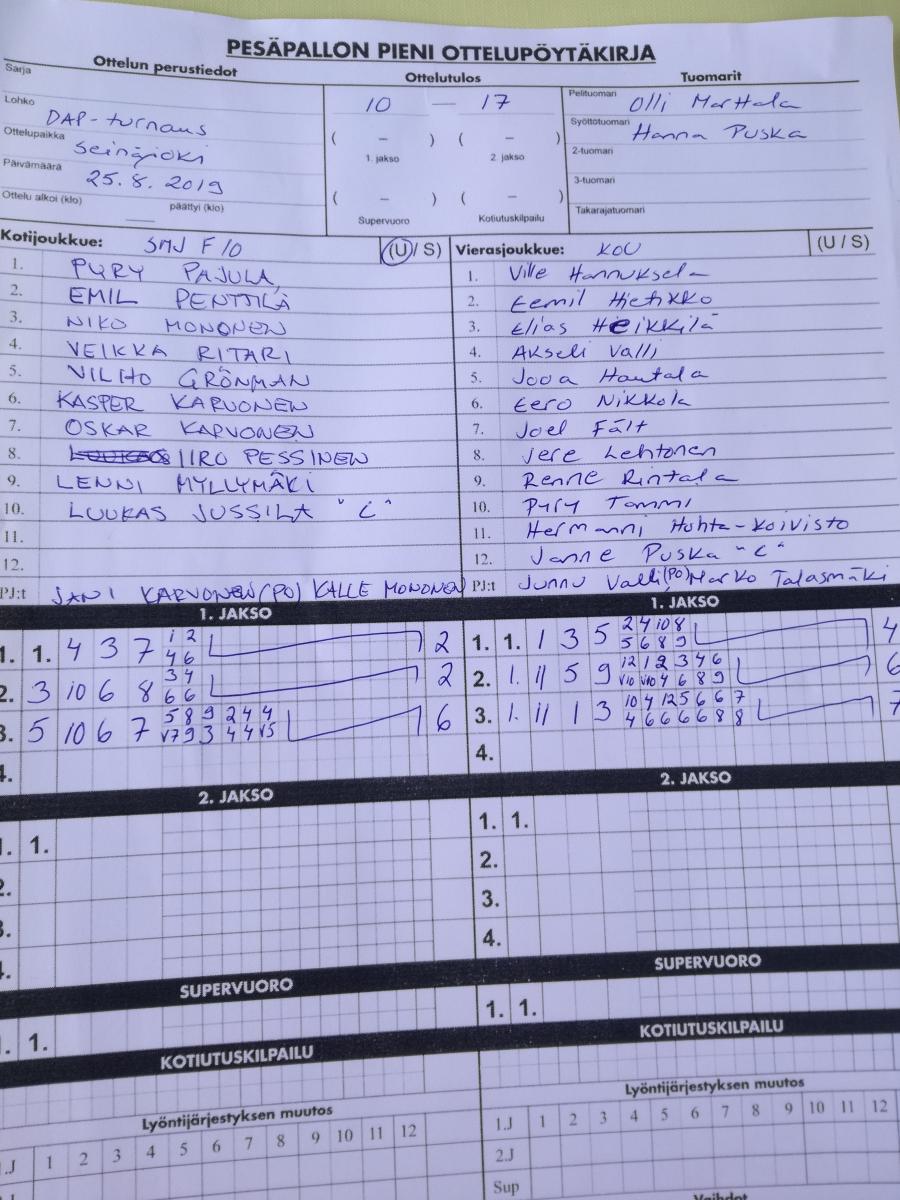 PESÄPALLON PIENI OTTELUPÖYTÄKIRJA
Ottelun perustiedot Ottelutulos Tuomarit
Sarja
Lohko DAP-turnaus
Ottelupaikka Seinäjoki
Päivämäärä 25.8.2019
Ottelu alkoi (klo) — päättyi (klo)
10 — 17
( – ) ( – )
1. jakso 2. jakso
( – ) ( – )
Supervuoro Kotiutuskilpailu
Pelituomari Olli Marttala
Syöttötuomari Hanna Puska
2-tuomari
3-tuomari
Takarajatuomari
Kotijoukkue: SMJ F10 (U / S)
1. PYRY PAJULA
2. EMIL PENTTILÄ
3. NIKO MONONEN
4. VEIKKA RITARI
5. VILHO GRÖNMAN
6. KASPER KARVONEN
7. OSKAR KARVONEN
8. IIRO PESSINEN
9. LENNI MYLLYMÄKI
10. LUUKAS JUSSILA "C"
11.
12.
PJ:t JANI KARVONEN (PO) KALLE MONONEN
Vierasjoukkue: KOU (U / S)
1. Ville Hannuksela
2. Eemil Hietikko
3. Elias Heikkilä
4. Akseli Valli
5. Jooa Hautala
6. Eero Nikkola
7. Joel Fält
8. Jere Lehtonen
9. Renne Rintala
10. Pyry Tommi
11. Hermanni Huhta-Koivisto
12. Janne Puska "C"
PJ:t Junnu Valli (PO) Marko Talasmäki
1. JAKSO
1. 1. 4 3 7 1 2 2
4 6
2. 3 10 6 8 3 4 2
6 6
3. 5 10 6 7 5 8 9 2 4 4 6
V7 9 3 4 4 V5
4.
1. JAKSO
1. 1. 1 3 5 2 4 10 8 4
5 6 8 9
2. 1. 11 5 9 12 1 2 3 4 6 6
V10 V10 4 6 8 9
3. 1. 11 1 3 10 4 12 5 6 6 7 7
4 6 6 6 6 8 8
4.
2. JAKSO
1. 1.
2.
3.
4.
2. JAKSO
1. 1.
2.
3.
4.
SUPERVUORO
1. 1.
SUPERVUORO
1. 1.
KOTIUTUSKILPAILU
KOTIUTUSKILPAILU
Lyöntijärjestyksen muutos
1.J 1 2 3 4 5 6 7 8 9 10 11 12
Lyöntijärjestyksen muutos
1.J 1 2 3 4 5 6 7 8 9 10 11 12
2.J
Sup
Vaihdot